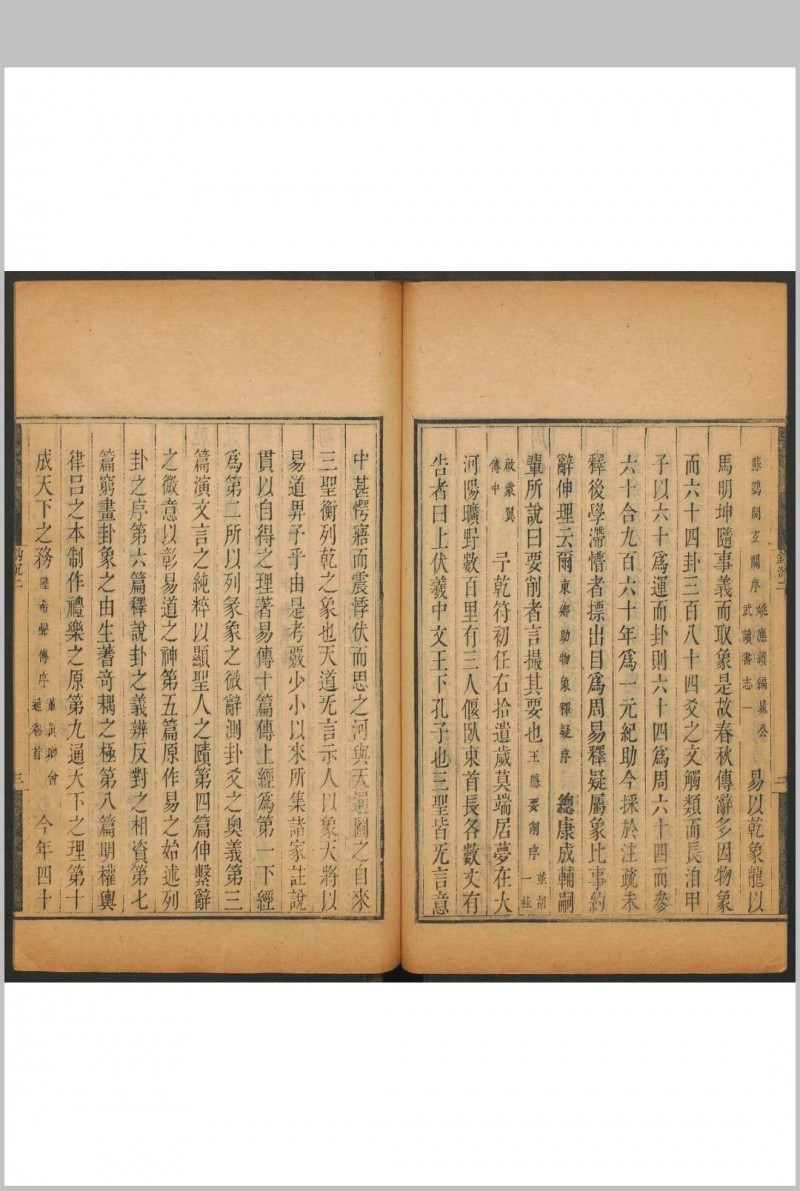 蘇鶚開玄關序 姚應績編晁公武讀書志一 易以乾象龍以
馬明坤隨事義而取象是故春秋傳辭多因物象
而六十四卦三百八十四爻之文觸類而長洎甲
子以六十爲運而卦則六十四爲周六十四而參
六十合九百六十年爲一元紀助今採於注疏未
釋後學滯懵者摽出目爲周易釋疑屬象比事約
辭伸理云爾 東鄉助物象釋疑序 總康成輔嗣
輩所說曰要削者言撮其要也 王隱要削序 一桂
啟蒙翼傳中 予乾符初任右拾遺歲莫端居夢在大
河陽曠野數百里有三人偃臥東首長各數丈有
告者曰上伏羲中文王下孔子也三聖皆旡言意
中甚愕寤而震悸伏而思之河與天通圖之自來
三聖衡列乾之象也天道旡言示人以象天將以
易道畀子乎由是考覈少小以來所集諸家註說
貫以自得之理著易傳十篇傳上經爲第一下經
爲第二所以列彖象之微辭測卦爻之奥義第三
篇演文言之純粹以顯聖人之賾第四篇伸繫辭
之微意以彰易道之神第五篇原作易之始述列
卦之序第六篇釋說卦之義辨反對之相資第七
篇窮畫卦象之由生著奇耦之極第八篇明權輿
律呂之本制作禮樂之原第九通天下之理第十
成天下之務 陸希聲傳序 通卷首 今年四十
三